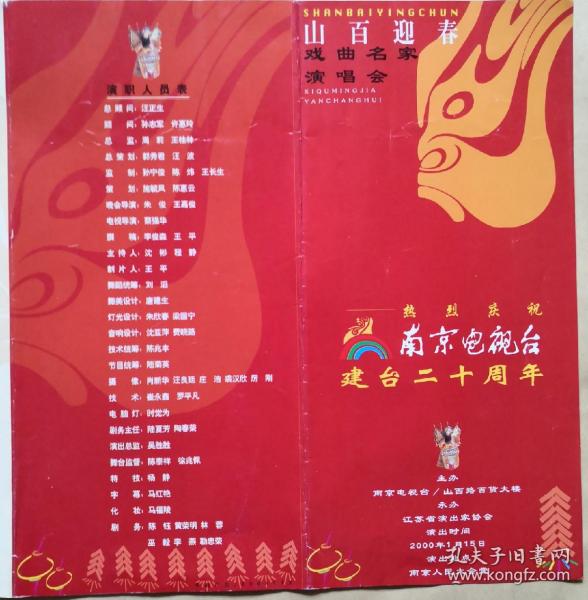 演职人员表
总顾问：汪正生
顾 问：孙志军 许惠玲
总 监：周 莉 王桂林
总策划：郭秀君 汪 波
监 制：孙宁俊 陈 炜 王长生
策 划：施毓凤 陈惠云
晚会导演：朱 俊 王嘉俊
电视导演：蔡强华
撰 稿：李俊淼 王 平
主持人：沈 彬 程 静
制片人：王 平
舞蹈统筹：刘 滔
舞美设计：唐建生
灯光设计：朱欣春 梁国宁
音响设计：沈亚萍 费晓路
技术统筹：陈兆丰
节目统筹：陆荣英
摄 像：肖新华 汪良廷 庄 池 裘汉欣 厉 刚
技 术：崔永鑫 罗平凡
电脑灯：时觉为
剧务主任：陆夏芳 陶春荣
演出总监：吴胜胜
舞台监督：陈泰祥 徐兆佩
特 技：杨 静
字 幕：马红艳
化 妆：马福陵
剧 务：陈 钰 黄荣明 林 蓉
巫 毅 李 燕 勒忠荣
SHANBAIYINGCHUN
山百迎春
戏曲名家
演唱会
XIQUMINGJIA
YANCHANGHUI
热烈庆祝
南京电视台
建台二十周年
主办
南京电视台/山西路百货大楼
承办
江苏省演出家协会
演出时间
2000年1月15日
演出地点
南京人民大会堂
孔夫子旧书网